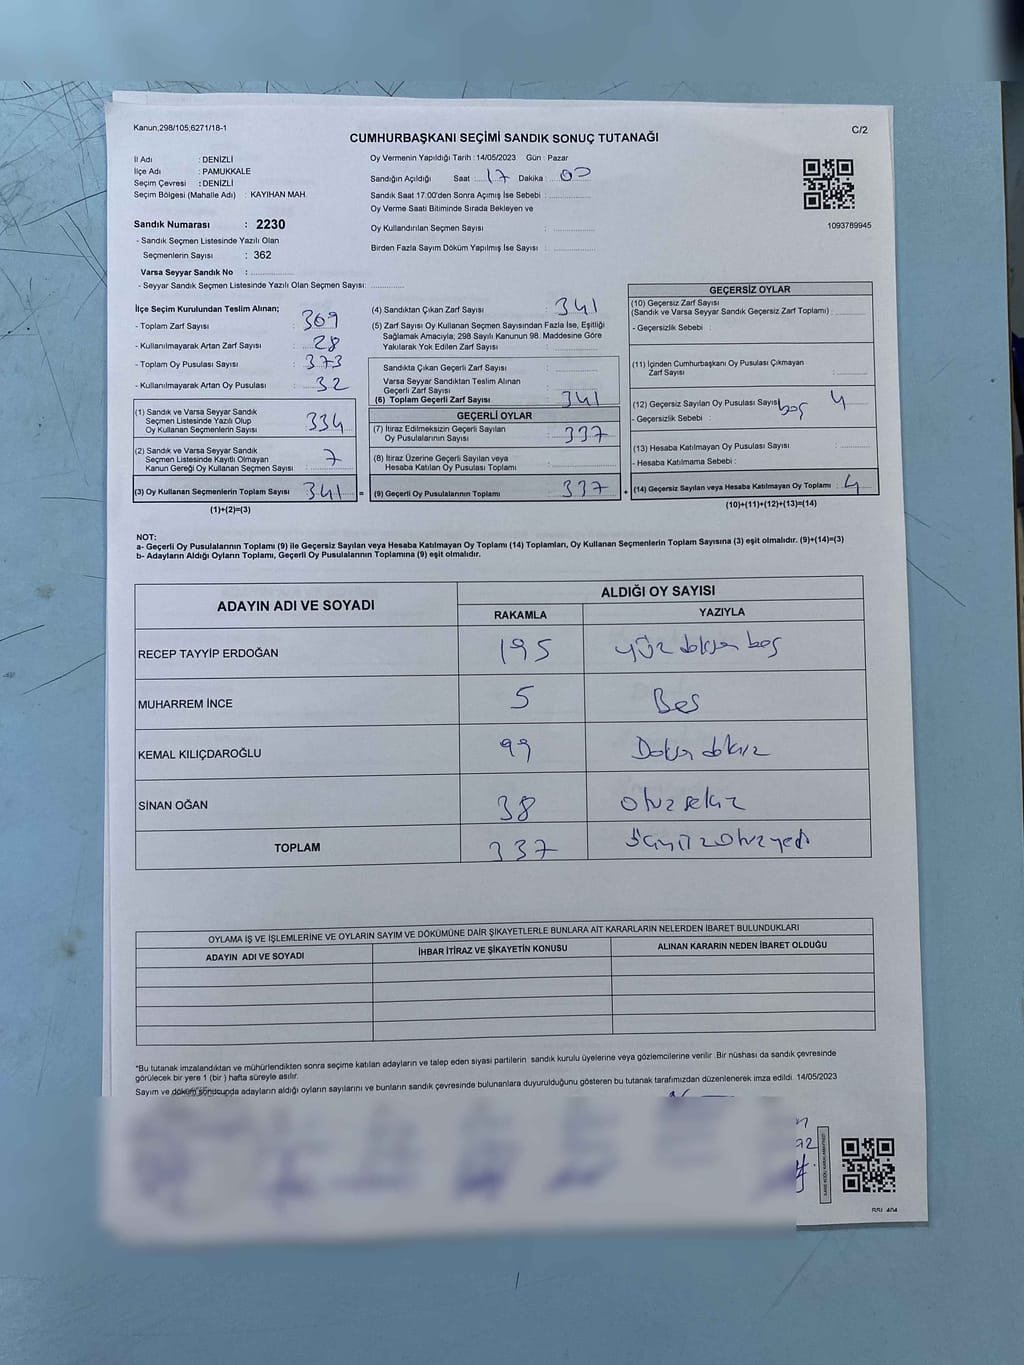 Kanun;298/105,6271/18-1
C/2
CUMHURBAŞKANI SEÇİMİ SANDIK SONUÇ TUTANAĞI
İl Adı : DENİZLİ
İlçe Adı : PAMUKKALE
Seçim Çevresi : DENİZLİ
Seçim Bölgesi (Mahalle Adı) : KAYIHAN MAH.
Sandık Numarası : 2230
- Sandık Seçmen Listesinde Yazılı Olan
Seçmenlerin Sayısı : 362
Varsa Seyyar Sandık No : ..............
- Seyyar Sandık Seçmen Listesinde Yazılı Olan Seçmen Sayısı: ............
Oy Vermenin Yapıldığı Tarih : 14/05/2023 Gün : Pazar
Sandığın Açıldığı Saat : 17 Dakika : 00
Sandık Saat 17.00'den Sonra Açımış İse Sebebi : ..............
Oy Verme Saati Bitiminde Sırada Bekleyen ve
Oy Kullandırılan Seçmen Sayısı : ..............
Birden Fazla Sayım Döküm Yapılmış İse Sayısı : ..............
1093789945
İlçe Seçim Kurulundan Teslim Alınan;
- Toplam Zarf Sayısı : 369
- Kullanılmayarak Artan Zarf Sayısı : 28
- Toplam Oy Pusulası Sayısı : 373
- Kullanılmayarak Artan Oy Pusulası : 32
(1) Sandık ve Varsa Seyyar Sandık
Seçmen Listesinde Yazılı Olup
Oy Kullanan Seçmenlerin Sayısı : 334
(2) Sandık ve Varsa Seyyar Sandık
Seçmen Listesinde Kayıtlı Olmayan
Kanun Gereği Oy Kullanan Seçmen Sayısı : 7
(3) Oy Kullanan Seçmenlerin Toplam Sayısı : 341 =
(1)+(2)=(3)
(4) Sandıktan Çıkan Zarf Sayısı : 341
(5) Zarf Sayısı Oy Kullanan Seçmen Sayısından Fazla İse, Eşitliği
Sağlamak Amacıyla; 298 Sayılı Kanunun 98. Maddesine Göre
Yakılarak Yok Edilen Zarf Sayısı : ..............
Sandıkta Çıkan Geçerli Zarf Sayısı : ..............
Varsa Seyyar Sandıktan Teslim Alınan
Geçerli Zarf Sayısı : ..............
(6) Toplam Geçerli Zarf Sayısı : 341
GEÇERLİ OYLAR
(7) İtiraz Edilmeksizin Geçerli Sayılan
Oy Pusulalarının Sayısı : 337
(8) İtiraz Üzerine Geçerli Sayılan veya
Hesaba Katılan Oy Pusulası Toplamı : ..............
(9) Geçerli Oy Pusulalarının Toplamı : 337 +
GEÇERSİZ OYLAR
(10) Geçersiz Zarf Sayısı
(Sandık ve Varsa Seyyar Sandık Geçersiz Zarf Toplamı) : ............
- Geçersizlik Sebebi :
(11) İçinden Cumhurbaşkanı Oy Pusulası Çıkmayan
Zarf Sayısı : ............
(12) Geçersiz Sayılan Oy Pusulası Sayısı 4
- Geçersizlik Sebebi : boş
(13) Hesaba Katılmayan Oy Pusulası Sayısı : ............
- Hesaba Katılmama Sebebi :
(14) Geçersiz Sayılan veya Hesaba Katılmayan Oy Toplamı : 4
(10)+(11)+(12)+(13)=(14)
NOT:
a- Geçerli Oy Pusulalarının Toplamı (9) ile Geçersiz Sayılan veya Hesaba Katılmayan Oy Toplamı (14) Toplamları, Oy Kullanan Seçmenlerin Toplam Sayısına (3) eşit olmalıdır. (9)+(14)=(3)
b- Adayların Aldığı Oyların Toplamı, Geçerli Oy Pusulalarının Toplamına (9) eşit olmalıdır.
ADAYIN ADI VE SOYADI ALDIĞI OY SAYISI
RAKAMLA YAZIYLA
RECEP TAYYİP ERDOĞAN 195 yüz doksan beş
MUHARREM İNCE 5 Beş
KEMAL KILIÇDAROĞLU 99 Doksan dokuz
SİNAN OĞAN 38 otuz sekiz
TOPLAM 337 üçyüzotuzyedi
OYLAMA İŞ VE İŞLEMLERİNE VE OYLARIN SAYIM VE DÖKÜMÜNE DAİR ŞİKAYETLERLE BUNLARA AİT KARARLARIN NELERDEN İBARET BULUNDUKLARI
ADAYIN ADI VE SOYADI İHBAR İTİRAZ VE ŞİKAYETİN KONUSU ALINAN KARARIN NEDEN İBARET OLDUĞU
*Bu tutanak imzalandıktan ve mühürlendikten sonra seçime katılan adayların ve talep eden siyasi partilerin sandık kurulu üyelerine veya gözlemcilerine verilir .Bir nüshası da sandık çevresinde
görülecek bir yere 1 (bir ) hafta süreyle asılır.
Sayım ve döküm sonucunda adayların aldığı oyların sayılarını ve bunların sandık çevresinde bulunanlara duyurulduğunu gösteren bu tutanak tarafımızdan düzenlenerek imza edildi. 14/05/2023